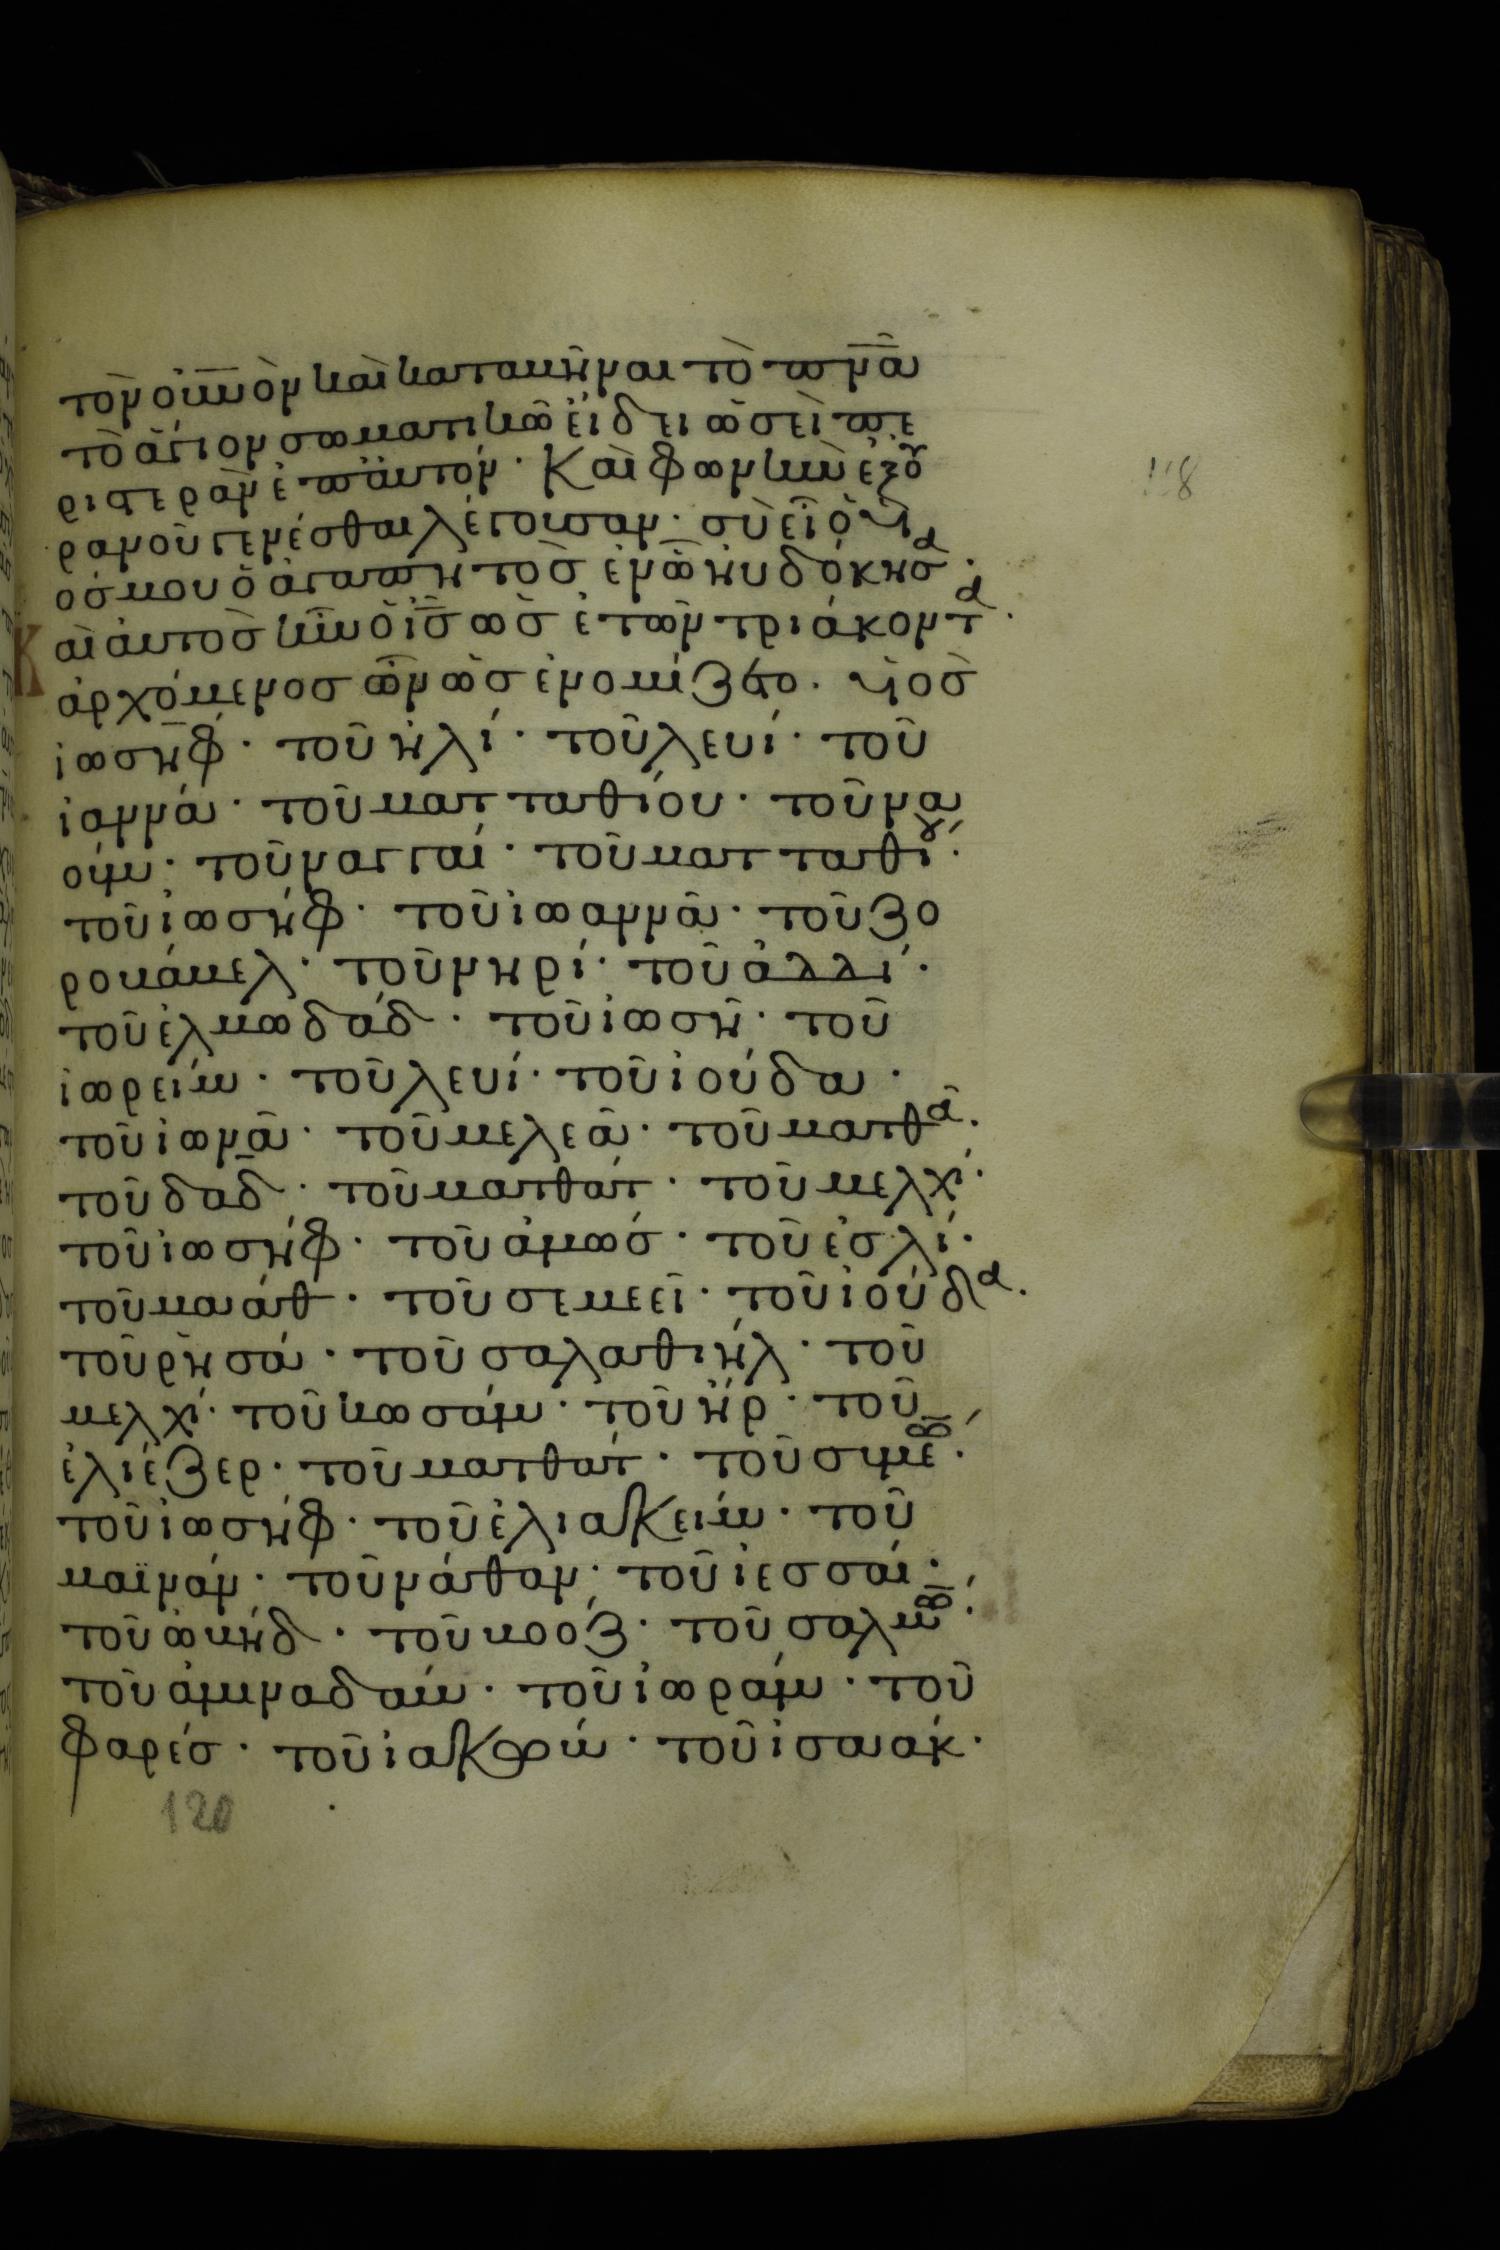 τὸν οὐ̅ν̅ὸν καὶ καταβῆναι τὸ π̅ν̅α̅
τὸ ἅγιον σωματικῶ εἴδει ὡσεὶ πε
ριστερὰν ἐπ' αὐτόν· Καὶ φωνὴν ἐξ οὐ
ρανοῦ γενέσθαι λέγουσαν· σὺ εἶ ὁ υἱ
όσ μου ὁ ἀγαπητὸσ ἐν ὧ ηὐδόκησα·
Καὶ αὐτὸσ ἦν ὁ ι̅σ̅ ὡσ ἐτῶν τριάκοντα·
ἀρχόμενοσ ὢν ὡσ ἐνομίζετο· υἱὸσ
ἰωσὴφ· τοῦ ἡλί· τοῦ λευί· τοῦ
ἰαννά· τοῦ ματταθίου· τοῦ να
ούμ· τοῦ ναγγαί· τοῦ ματταθίου·
τοῦ ἰωσήφ· τοῦ ἰωαννᾶ· τοῦ ζο
ροβάβελ· τοῦ νηρί· τοῦ ἀλλί·
τοῦ ἐλμωδάδ· τοῦ ἰωσῆ· τοῦ
ἰωρείμ· τοῦ λευί· τοῦ ἰούδα·
τοῦ ἰωνᾶ· τοῦ μελεᾶ· τοῦ ματθᾶ·
τοῦ δα̅δ̅· τοῦ ματθάτ· τοῦ μελχί·
τοῦ ἰωσήφ· τοῦ ἀμώσ· τοῦ ἐσλί·
τοῦ μαάθ· τοῦ σεμεεῖ· τοῦ ἰούδα·
τοῦ ρησά· τοῦ σαλαθιήλ· τοῦ
μελχί· τοῦ κωσάμ· τοῦ ἤρ· τοῦ
ἐλιέζερ· τοῦ ματθάτ· τοῦ συμεώ̅·
τοῦ ἰωσήφ· τοῦ ἐλιακείμ· τοῦ
μαϊνάν· τοῦ νάθαν· τοῦ ἰεσσαί·
τοῦ ὠβήδ· τοῦ βοόζ· τοῦ σαλμώ̅·
τοῦ ἀμιναδάβ· τοῦ ἰωράμ· τοῦ
φαρέσ· τοῦ ἰακώβ· τοῦ ἰσαάκ·
120